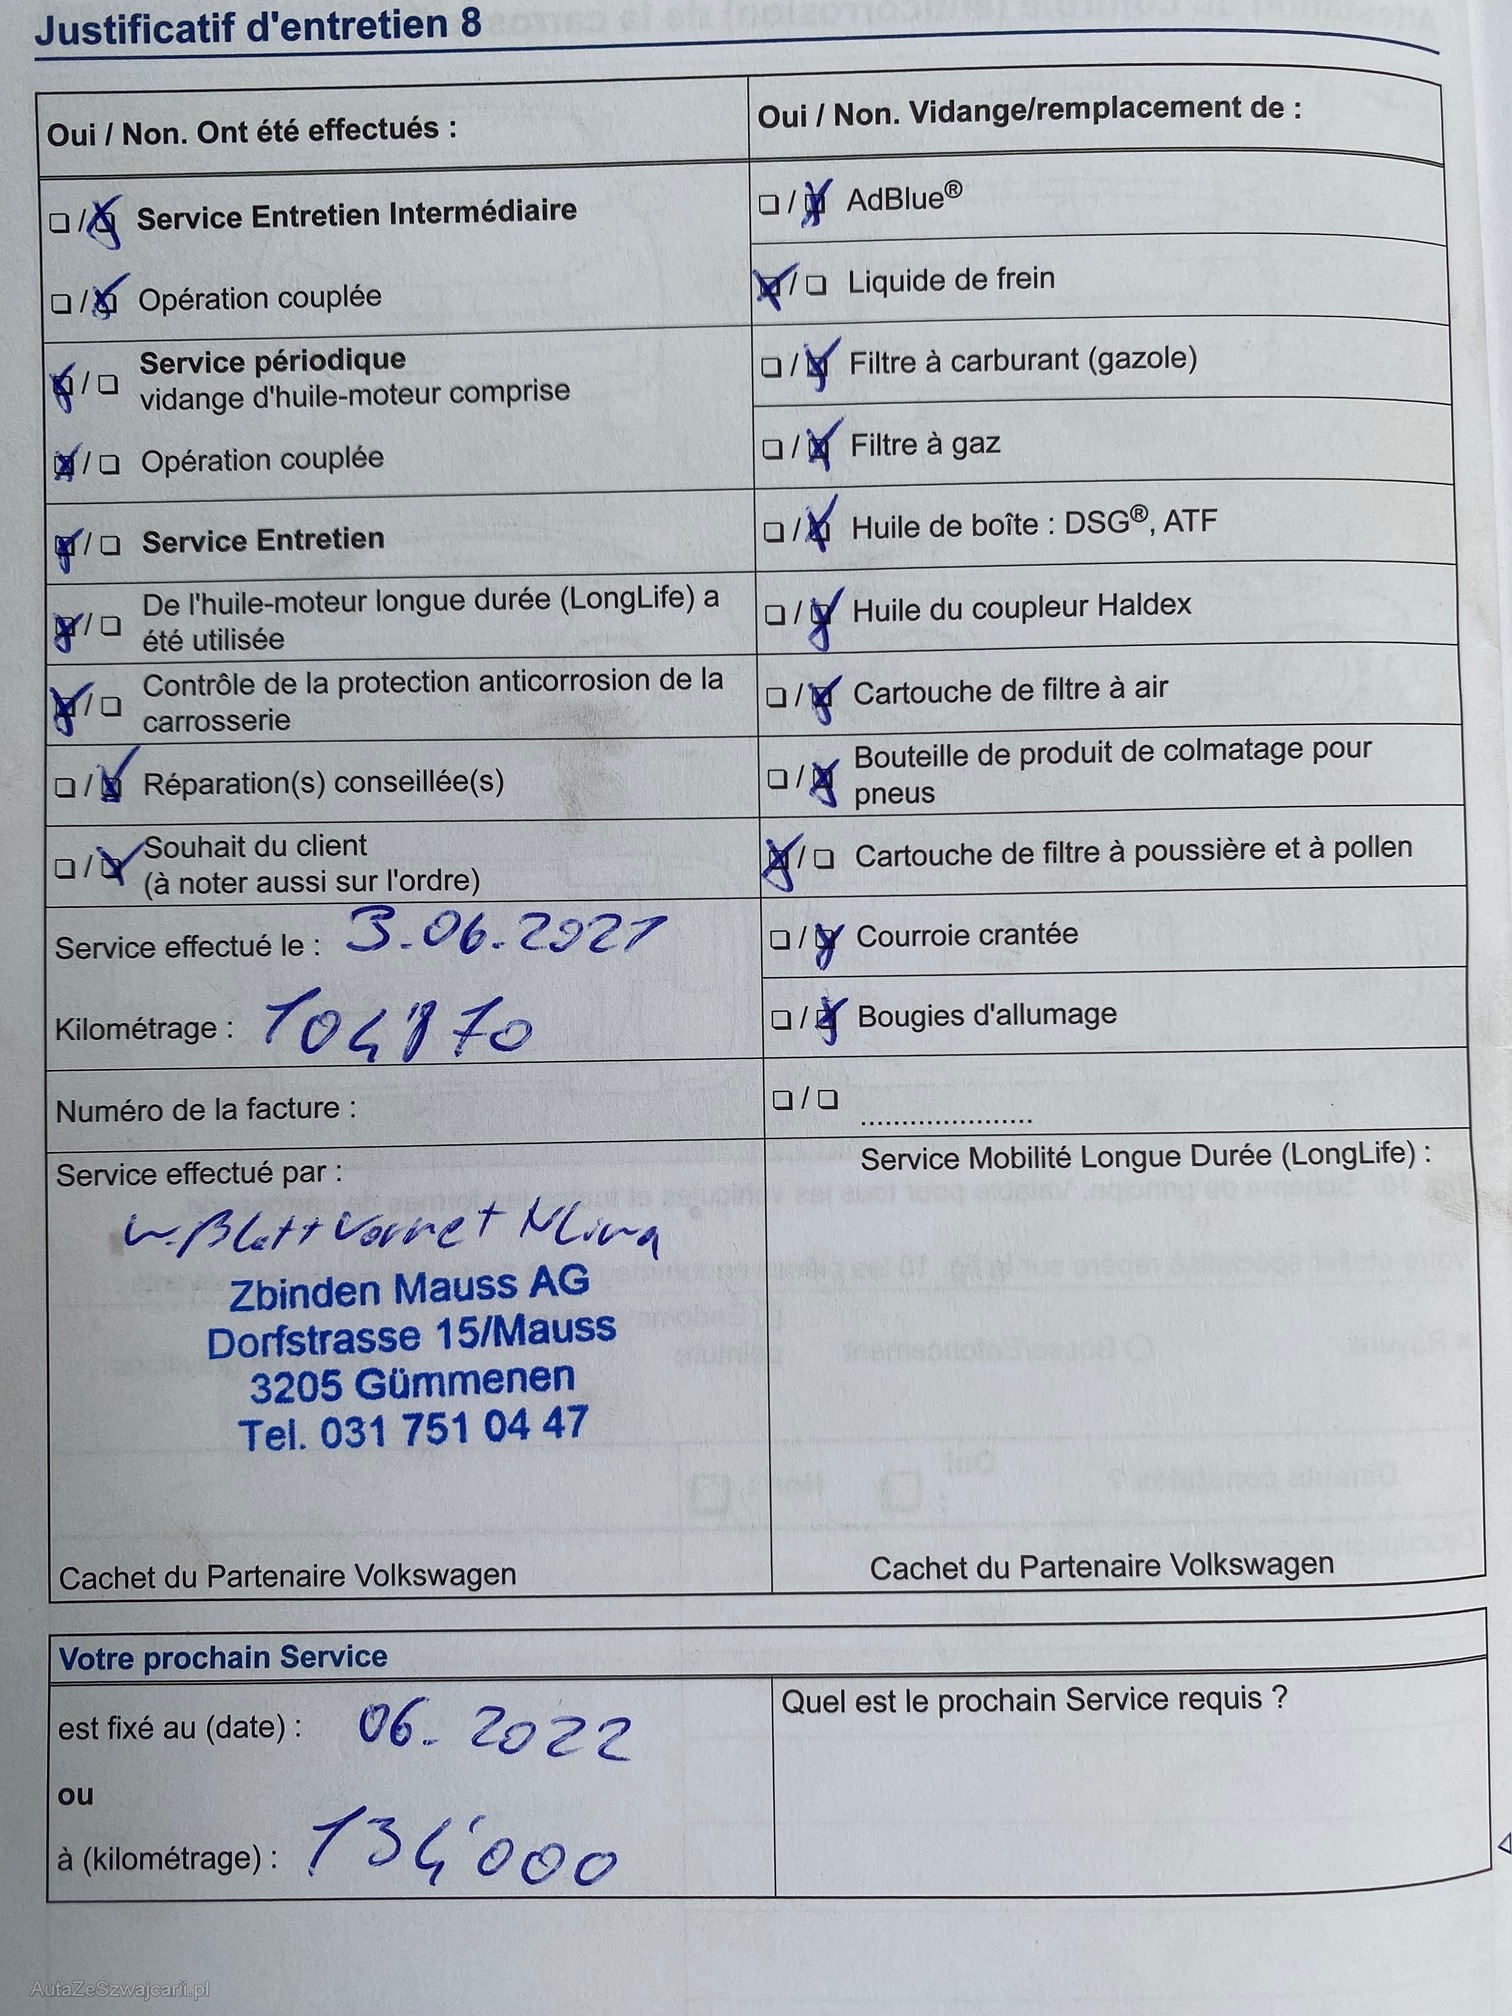 Justificatif d'entretien 8
Oui / Non. Ont été effectués :
Service Entretien Intermédiaire
Opération couplée
Service périodique
vidange d'huile-moteur comprise
Opération couplée
Service Entretien
De l'huile-moteur longue durée (LongLife) a
été utilisée
Contrôle de la protection anticorrosion de la
carrosserie
Réparation(s) conseillée(s)
Souhait du client
(à noter aussi sur l'ordre)
Service effectué le : 3.06.2021
Kilométrage :
Numéro de la facture :
Service effectué par :
Zbinden Mauss AG
Dorfstrasse 15/Mauss
3205 Gümmenen
Tel. 031 751 04 47
Cachet du Partenaire Volkswagen
Oui / Non. Vidange/remplacement de :
AdBlue®
Liquide de frein
Filtre à carburant (gazole)
Filtre à gaz
Huile de boîte : DSG®, ATF
Huile du coupleur Haldex
Cartouche de filtre à air
Bouteille de produit de colmatage pour
pneus
Cartouche de filtre à poussière et à pollen
Courroie crantée
Bougies d'allumage
Service Mobilité Longue Durée (LongLife) :
Cachet du Partenaire Volkswagen
Votre prochain Service
est fixé au (date) : 06. 2022
ou
à (kilométrage) : 134'000
Quel est le prochain Service requis ?
AutaZeSzwajcarii.pl